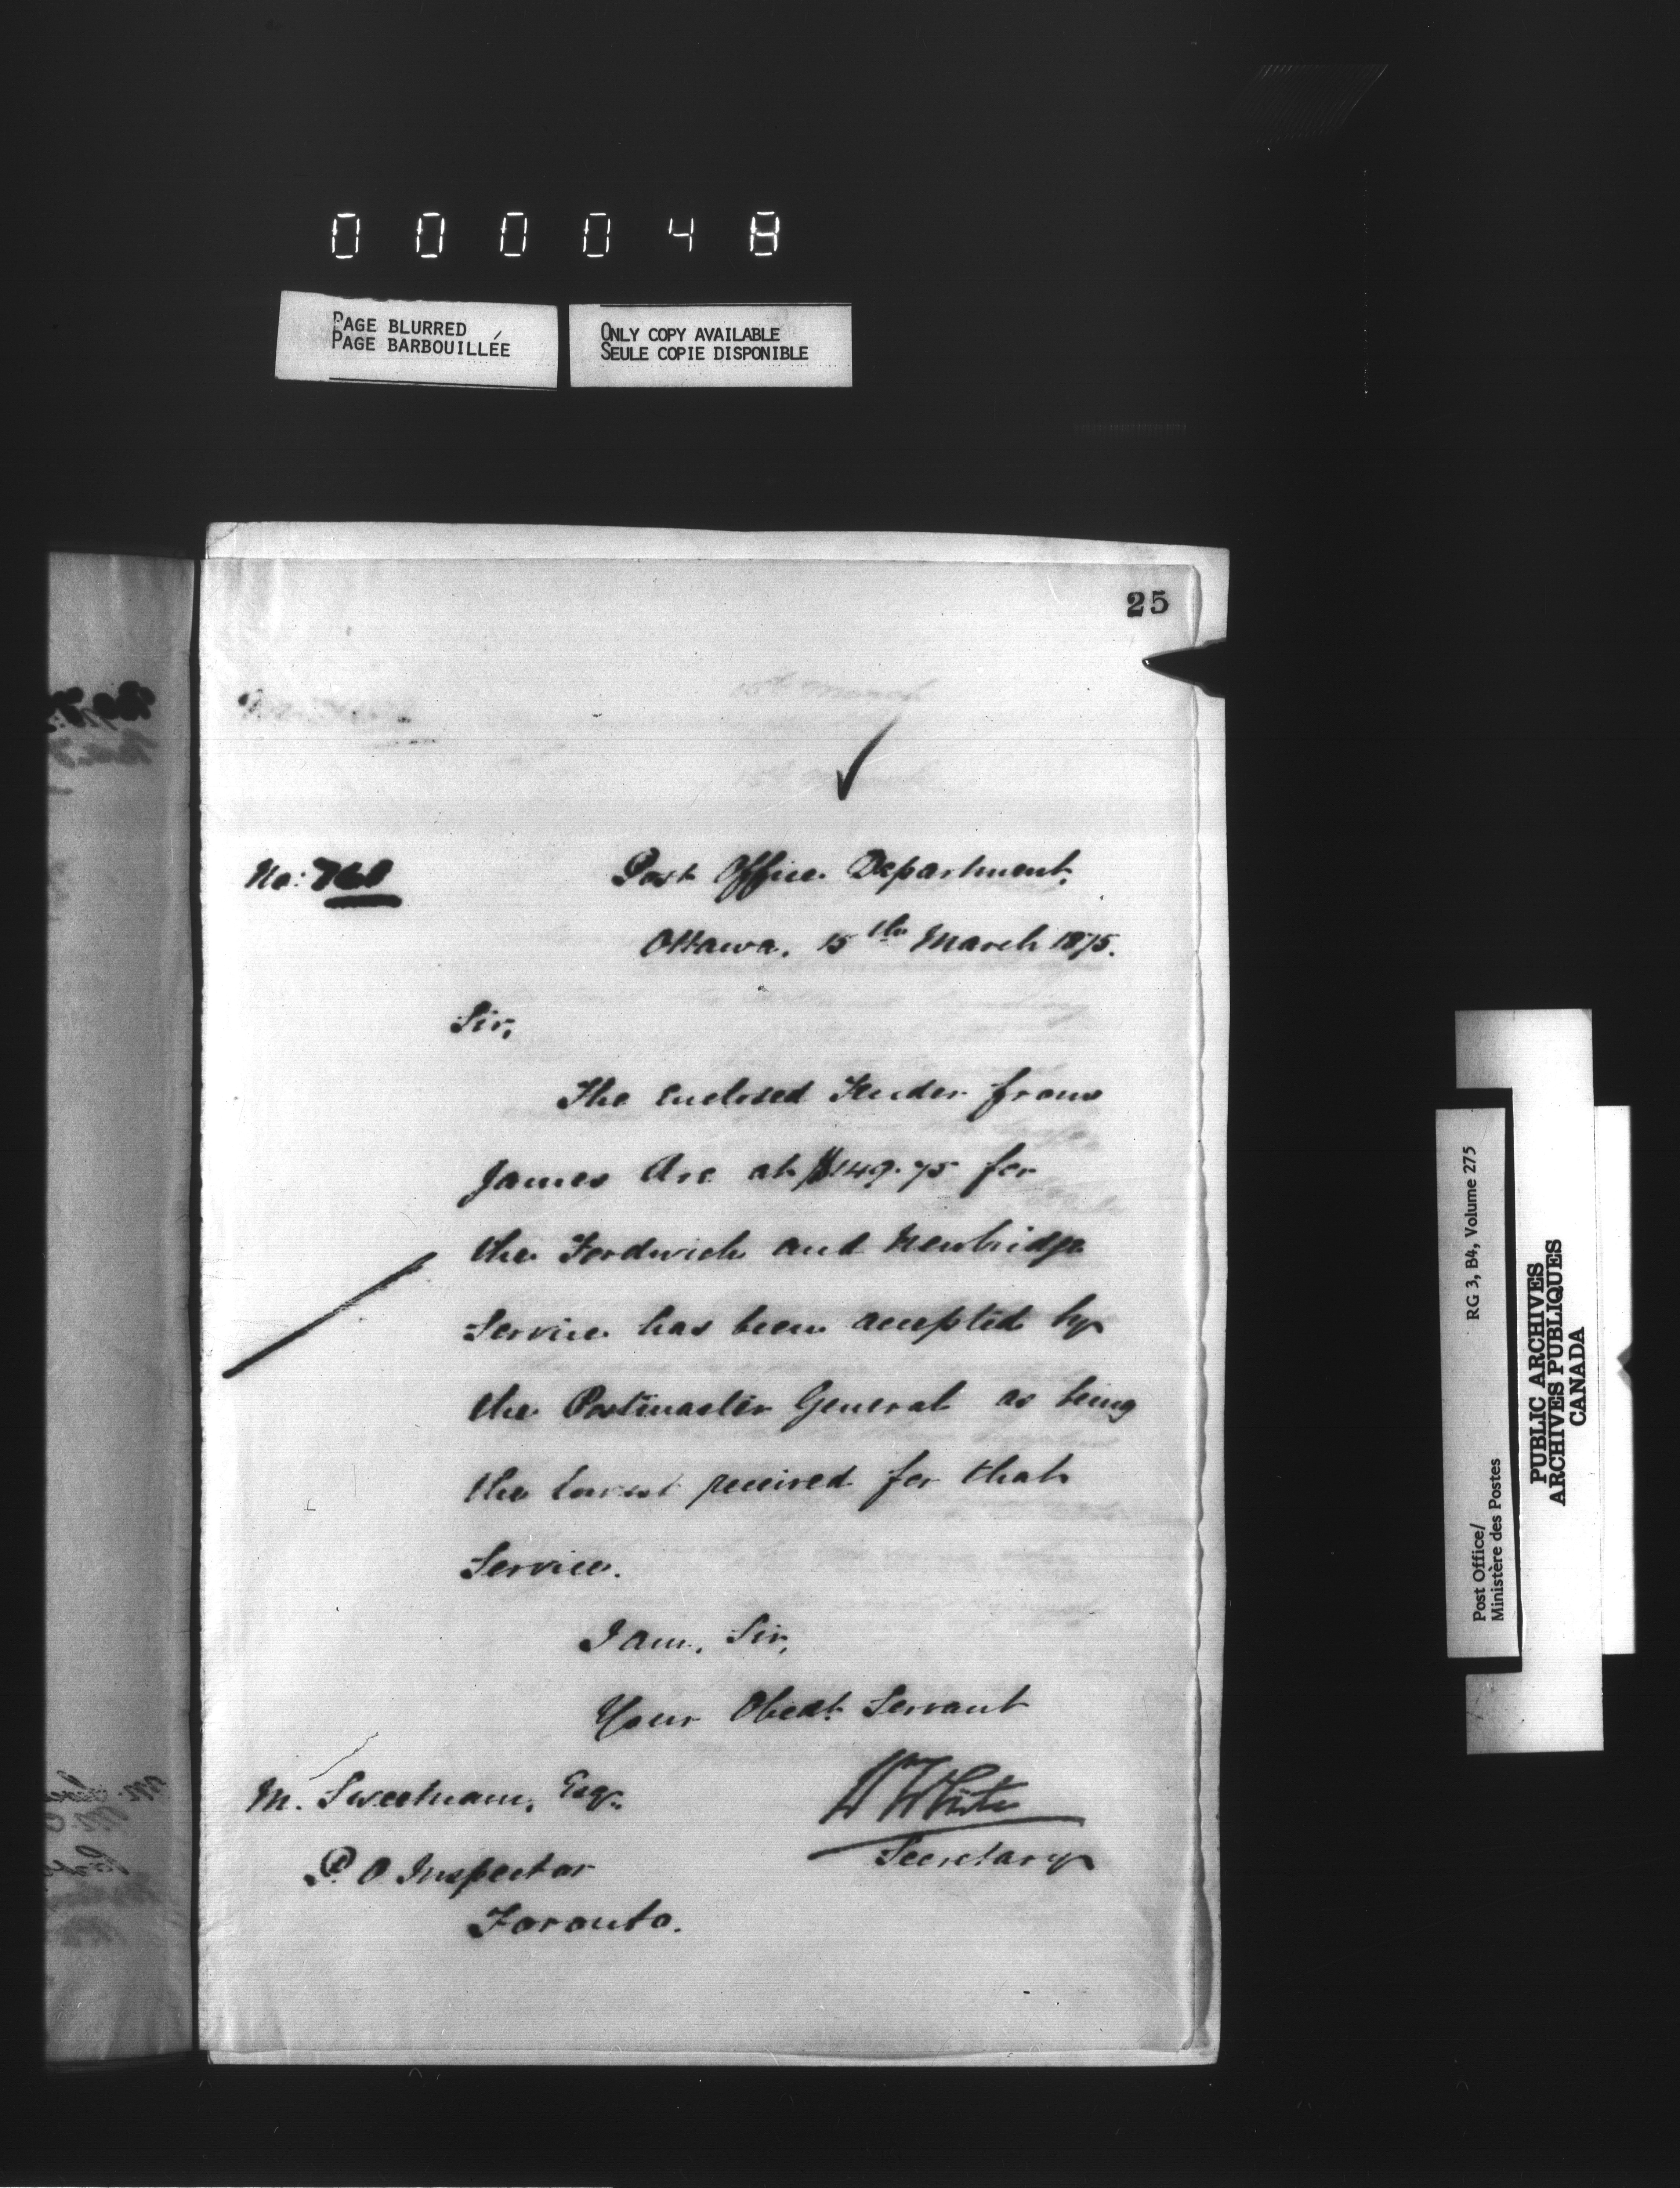 000048
PAGE BLURRED
PAGE BARBOUILLÉE
ONLY COPY AVAILABLE
SEULE COPIE DISPONIBLE
25
15th March
No: 760
Post Office Department,
Ottawa, 15th March 1875.
Sir,
The Enclosed Tender from
James Are at $149.75 for
the Fordwich and Newbridge
Service has been accepted by
the Postmaster General as being
the lowest received for that
Service.
I am, Sir,
Your Obedt Servant
W White
Secretary
M. Sweetnam, Esq.
P. O Inspector
Toronto.
Post Office/
Ministère des Postes
RG 3, B4, Volume 275
PUBLIC ARCHIVES
ARCHIVES PUBLIQUES
CANADA